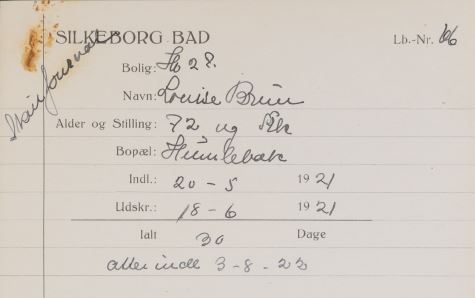 SILKEBORG BAD Lb.-Nr. 66
Bolig: Hb 28.
Navn: Louise Bruun
Alder og Stilling: 72 ug Frk
Bopæl: Humlebæk
Indl.: 20 - 5 1921
Udskr.: 18 - 6 1921
Ialt 30 Dage
atter indl 3-8-22